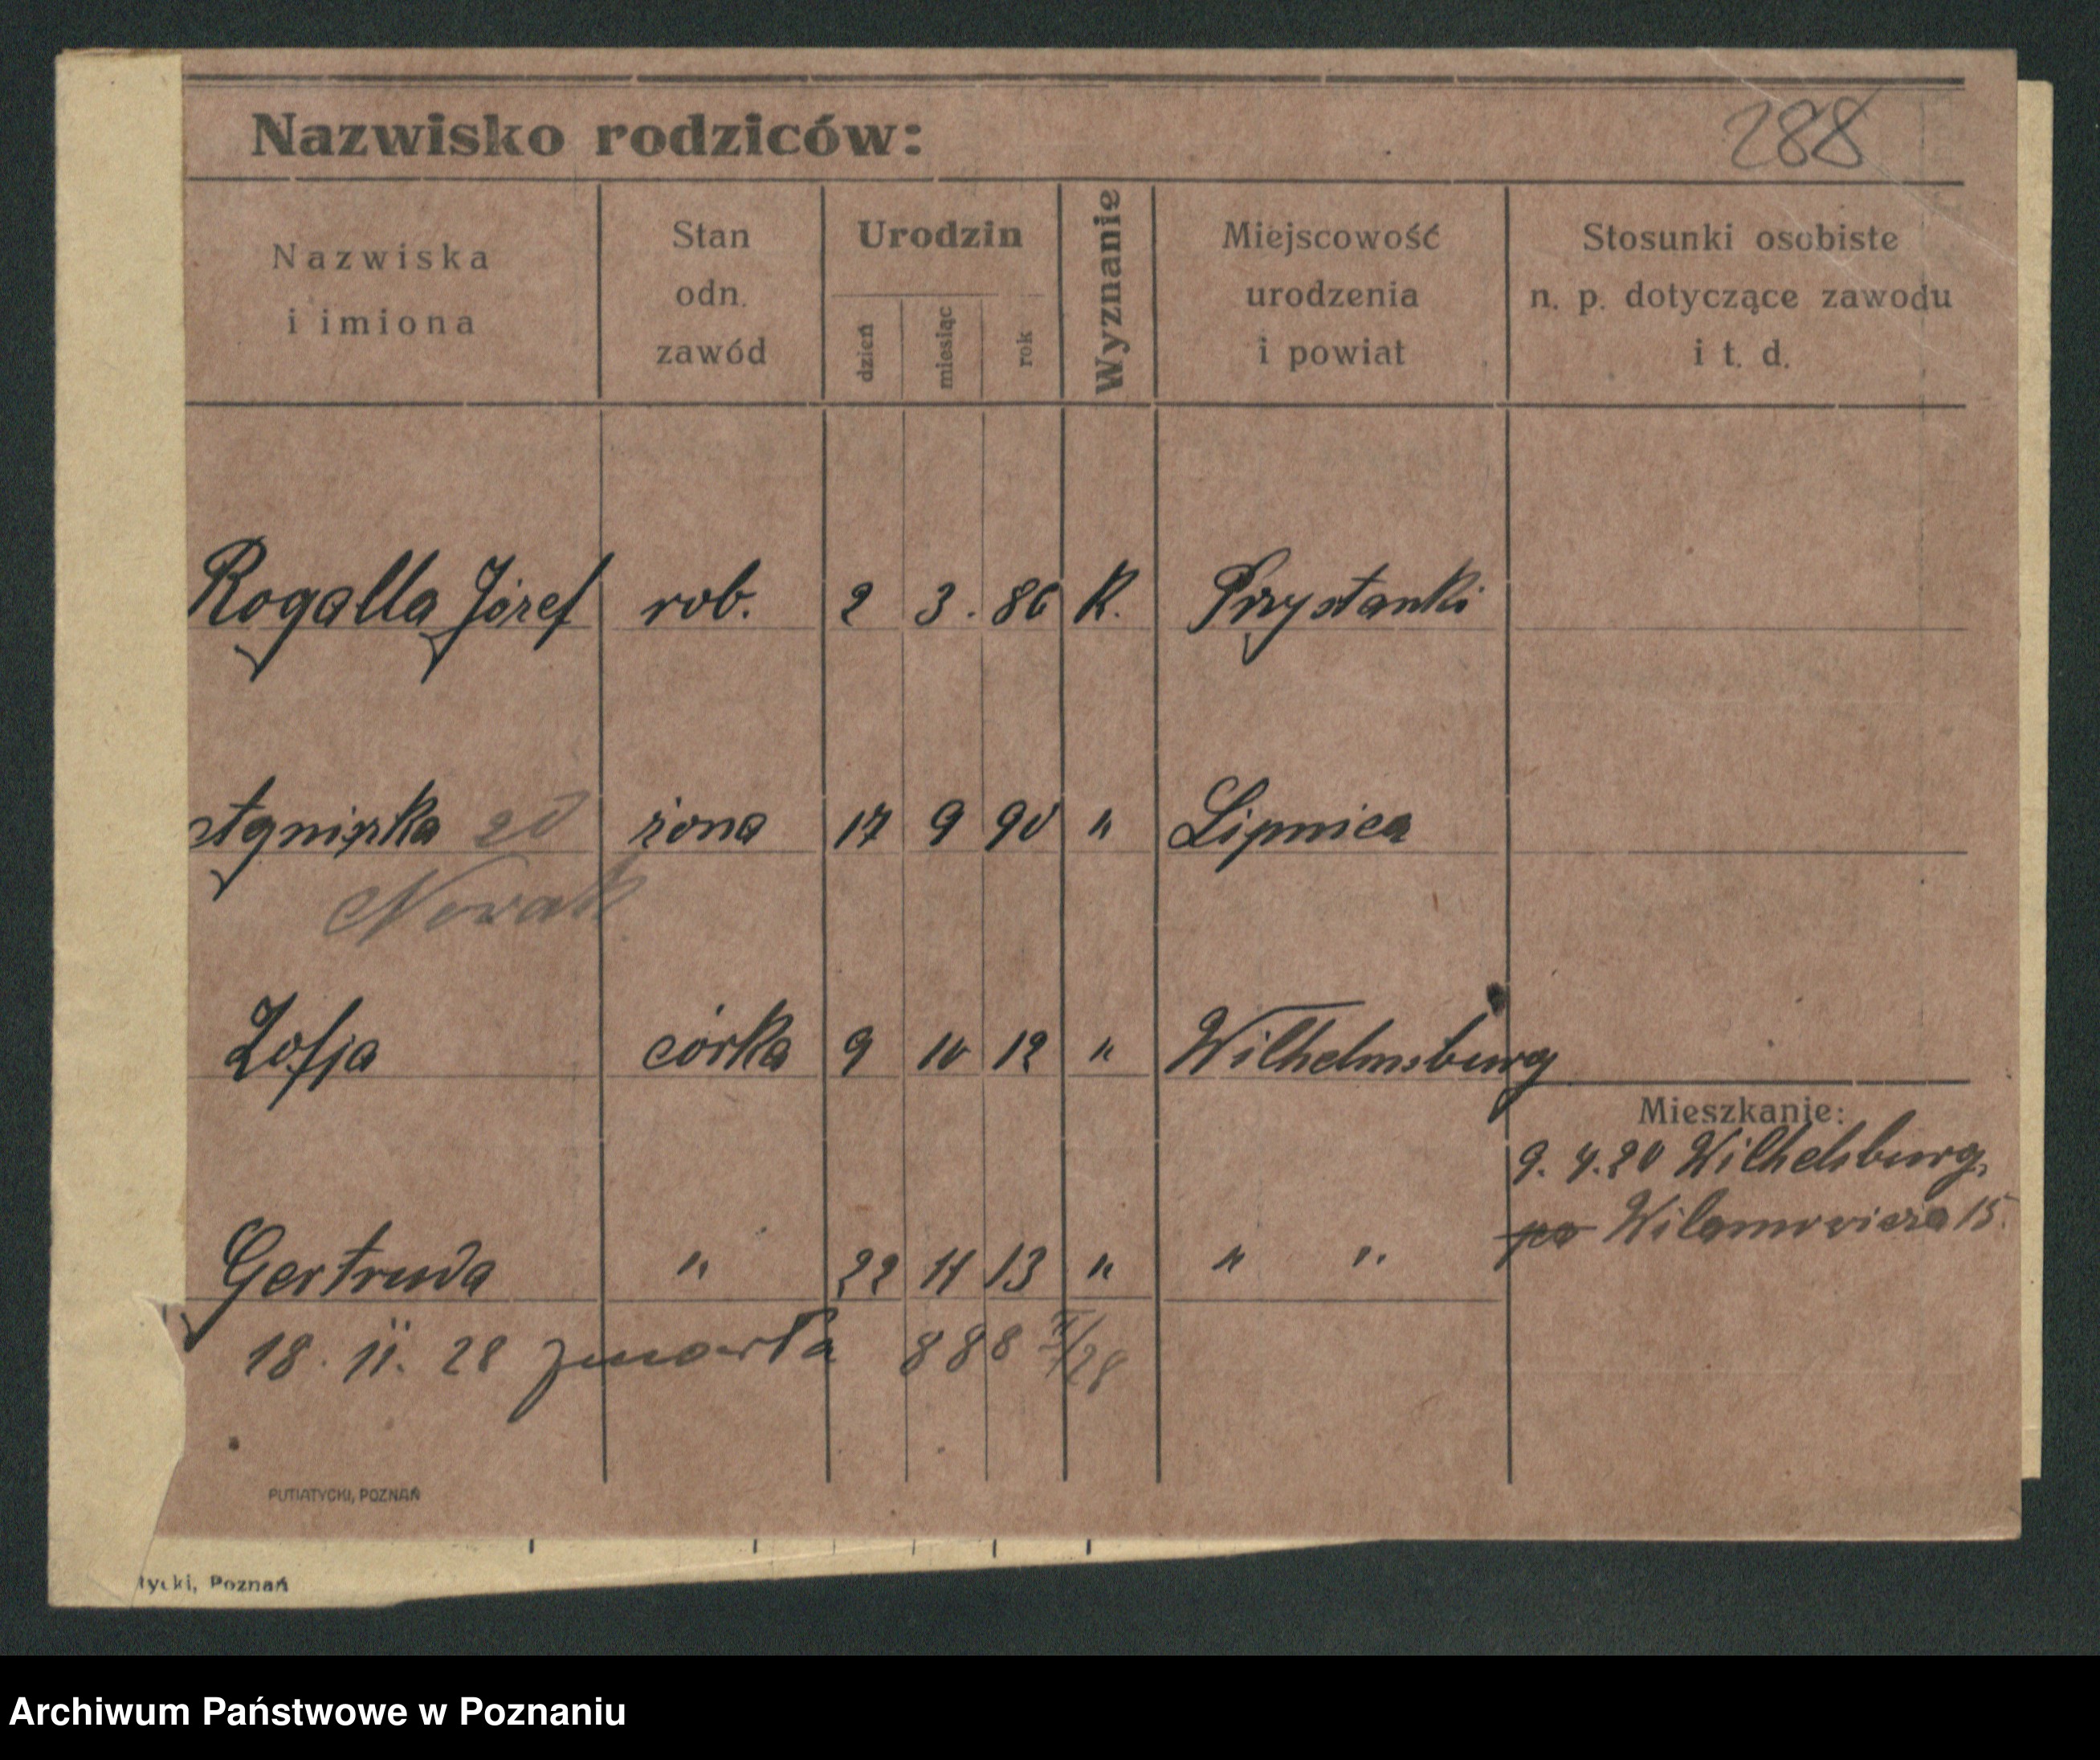 Nazwisko rodziców:
288
Nazwiska i imiona
Stan odn. zawód
Urodzin
dzień
miesiąc
rok
Wyznanie
Miejscowość urodzenia i powiat
Stosunki osobiste n. p. dotyczące zawodu i t. d.
Rogalla Józef rob. 2 3. 86 K. Przystanki
Agnieszka zd żona 17 9 90 " Lipnica
Nowak
Zofja córka 9 10 12 " Wilhelmsburg
Mieszkanie:
9. 4. 20 Wilhelsburg,
Gertruda " 22 11 13 " " "
18. 11. 28 zmarła 888 /28
PUTIATYCKI, POZNAŃ
tycki, Poznań
Archiwum Państwowe w Poznaniu